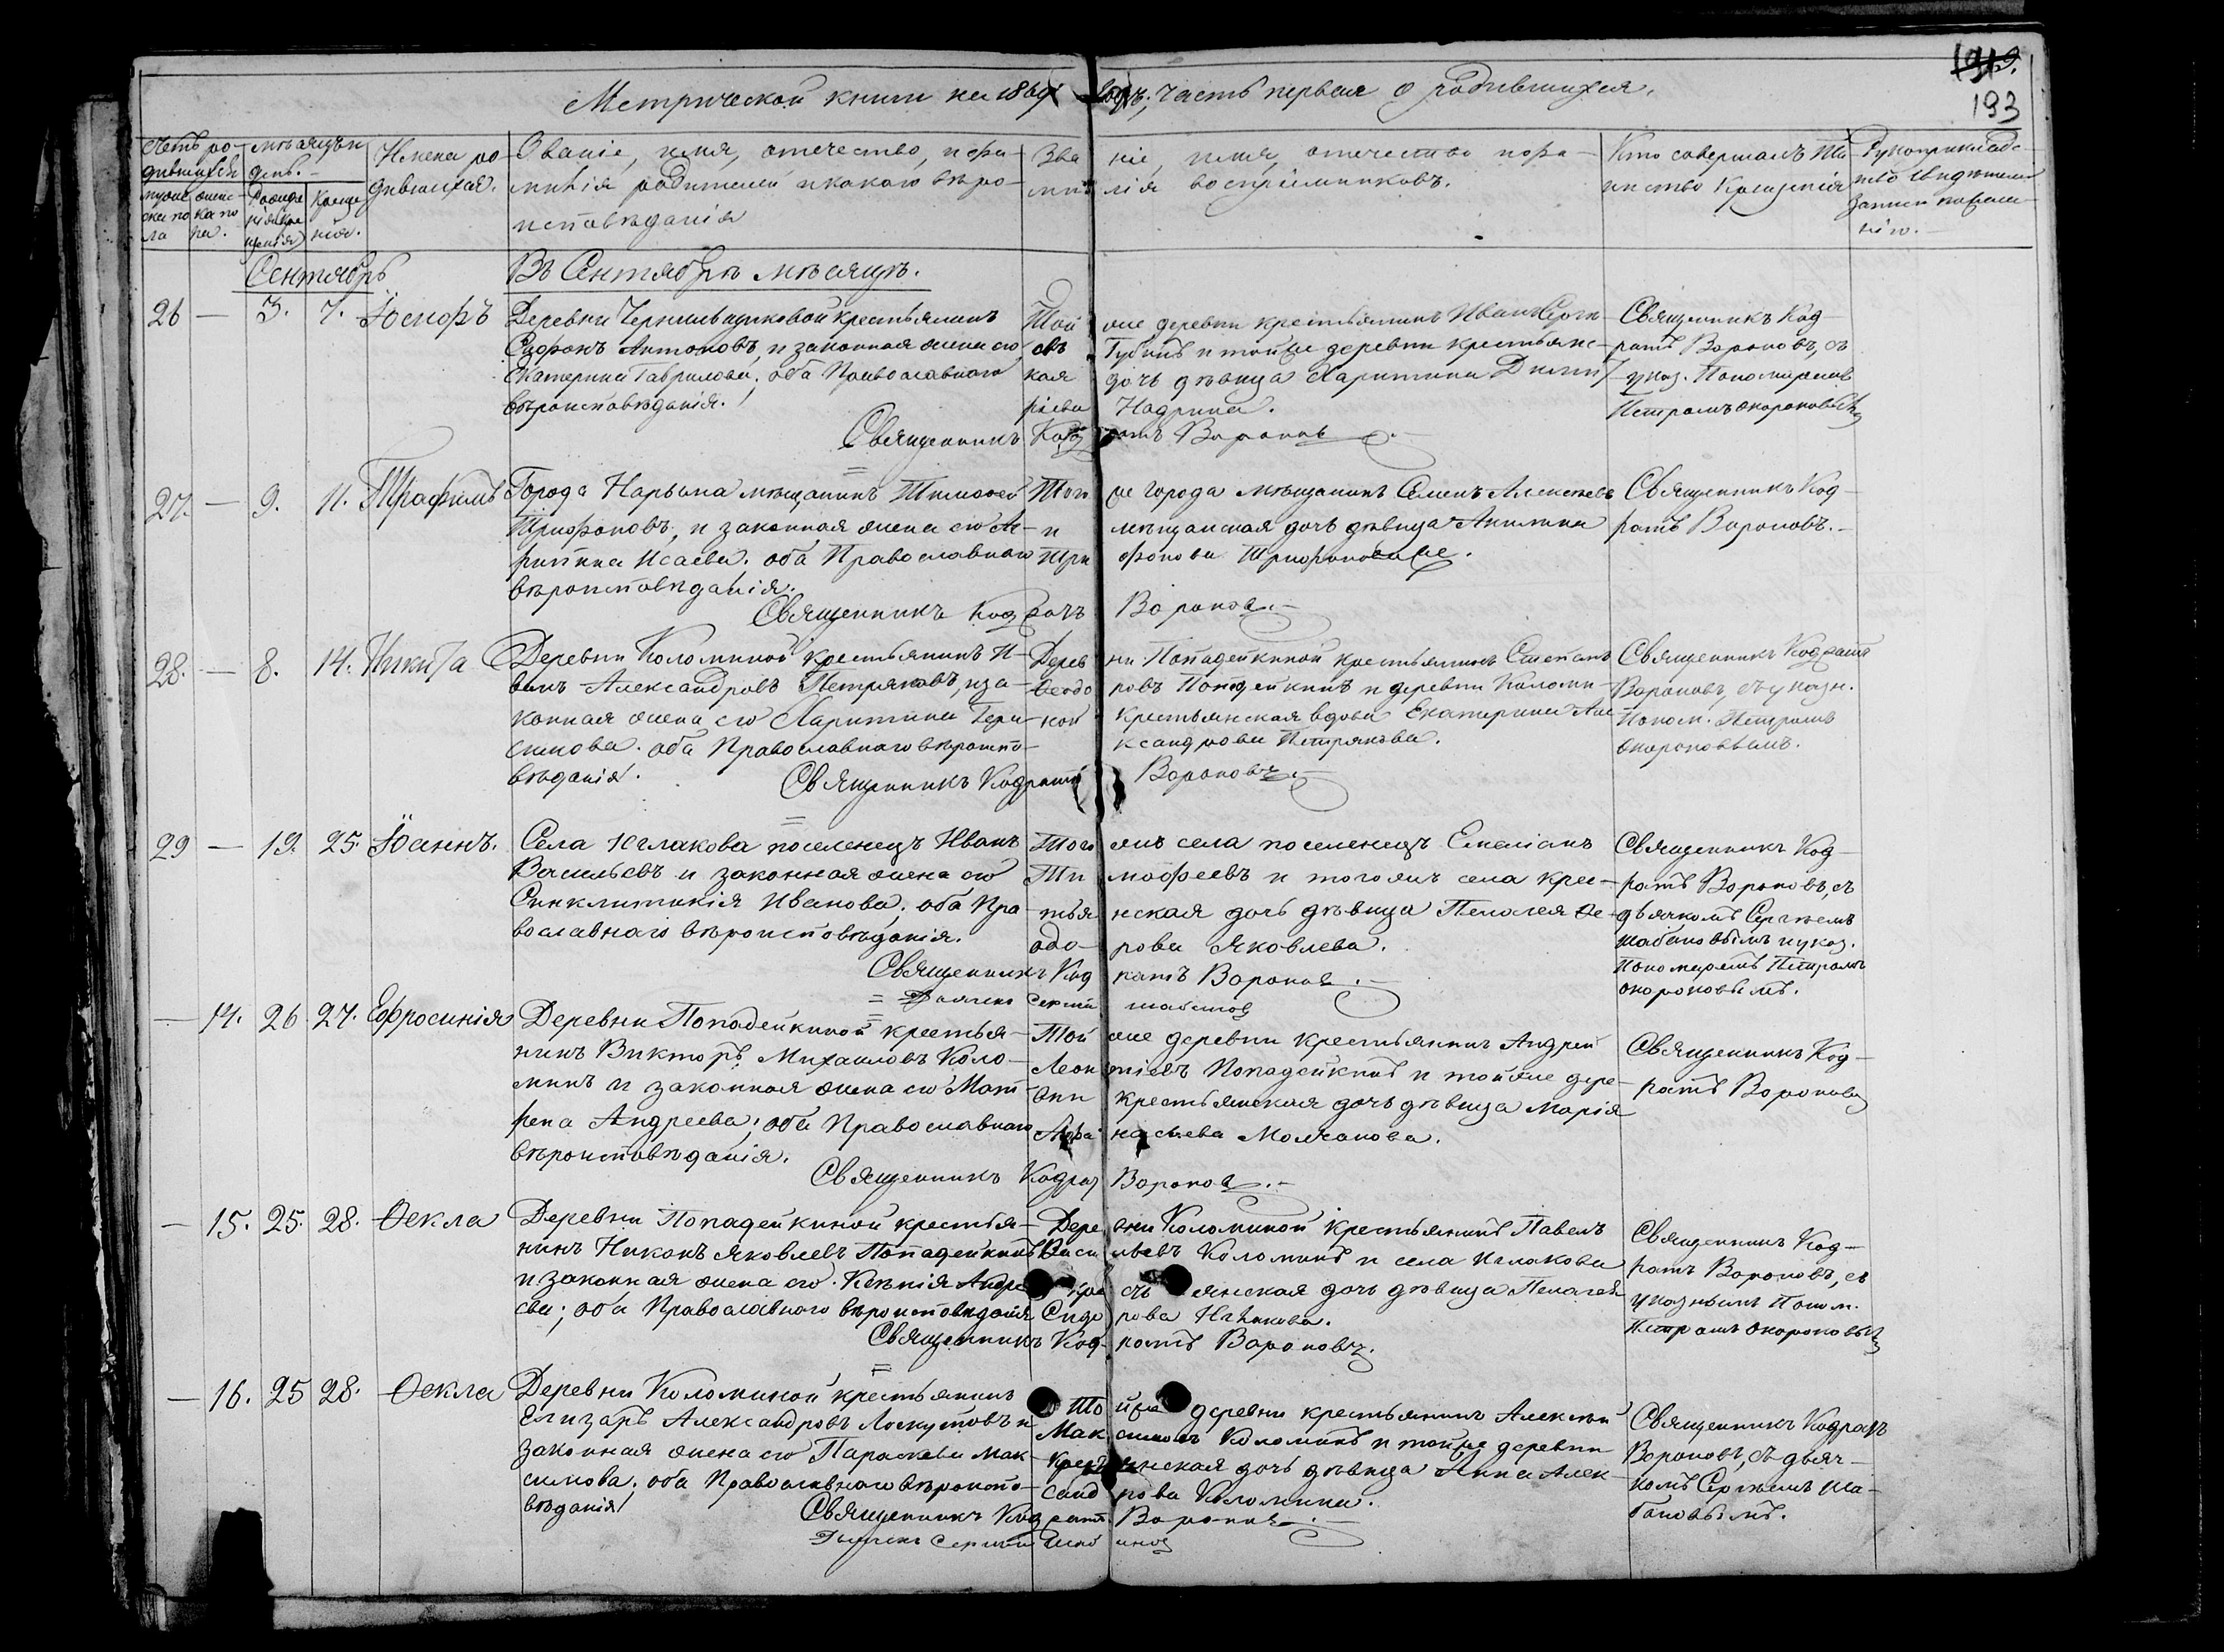 193
Метрической книги на 186 годъ, часть первая о родившихся.
Счетъ родившихся
мужеска пола
женска пола.
Мѣсяцъ и день.
Рожденія
Крещенія.
Имена родившихся.
Званіе, имя, отечество, и фамилія родителей и какого вѣроисповѣданія
Званіе, имя, отечество и фамилія воспріемниковъ.
Кто совершалъ таинство Крещенія
Рукоприкладство свидѣтелей записи по желанію.
Сентябрь
Въ Сентябрѣ мѣсяцѣ.
26 — 3. 7. Іосифъ
Деревни Чернильщиковой крестьянинъ
Софонъ Антоновъ, и законная жена его
Екатерина Гаврилова, оба Православнаго
вѣроисповѣданія.
Той же деревни крестьянинъ Иванъ
Губинъ и той же деревни крестьянская
дочь дѣвица Харитина Димитріева
Надрина.
Священникъ Кодратъ Вороновъ, съ
указ. Пономаремъ
Петромъ Окороковымъ
Священникъ Кодратъ Вороновъ
27. — 9. 11. Трофимъ
Города Нарыма мѣщанинъ Тимофей
Трифоновъ, и законная жена его Агрипина
Исаева. оба Православнаго
вѣроисповѣданія.
Того же города мѣщанинъ Семенъ Алексѣевъ
и мѣщанская дочь дѣвица Акилина
Трифонова Трифоновыхъ.
Священникъ Кодратъ Вороновъ.
Священникъ Кодратъ Вороновъ.
28. — 8. 14. Никита
Деревни Коломиной крестьянинъ Иванъ
Александровъ Петряковъ, и законная
жена его Харитина Герасимова.
оба Православнаго вѣроисповѣданія.
Деревни Попадейкиной крестьянинъ Степанъ
Ѳеодоровъ Попадейкинъ и деревни Коломиной
крестьянская вдова Екатерина Александрова
Петрякова.
Священникъ Кодратъ
Вороновъ, съ указн.
Поном. Петромъ
Окороковымъ.
Священникъ Кодратъ Вороновъ.
29 — 19. 25. Іоаннъ.
Села Иглакова поселенецъ Иванъ
Васильевъ и законная жена его
Синклитикія Иванова; оба Православнаго
вѣроисповѣданія.
Того же села поселенецъ Емеліанъ
Тимофеевъ и того же села крестьянская
дочь дѣвица Пелагея Ѳеодорова
Яковлева.
Священникъ Кодратъ Вороновъ, съ
дьячкомъ Сергѣемъ
Шабановымъ и указ.
Пономаремъ Петромъ
Окороковымъ.
Священникъ Кодратъ Вороновъ.
Дьячекъ Сергій Шабановъ
— 14. 26 27. Ефросинія
Деревни Попадейкиной крестьянинъ
Викторъ Михаиловъ Коломинъ
и законная жена его Матрена
Андреева; оба Православнаго
вѣроисповѣданія.
Той же деревни крестьянинъ Андрей
Леонтіевъ Попадейкинъ и той же деревни
крестьянская дочь дѣвица Марія
Афанасьева Молчанова.
Священникъ Кодратъ Вороновъ
Священникъ Кодрат Вороновъ.
— 15. 25. 28. Ѳекла
Деревни Попадейкиной крестьянинъ
Никонъ Яковлевъ Попадейкинъ
и законная жена его Ксенія Андреева;
оба Православнаго вѣроисповѣданія
Деревни Коломиной крестьянинъ Павелъ
Васильевъ Коломинъ и села Иглакова
крестьянская дочь дѣвица Пелагея
Сидорова Иглакова.
Священникъ Кодратъ Вороновъ, съ
указнымъ Поном.
Петромъ Окороковымъ
Священникъ Кодратъ Вороновъ.
— 16. 25 28. Ѳекла
Деревни Коломиной крестьянинъ
Елизаръ Александровъ Лоскутовъ и
законная жена его Параскева Максимова,
оба Православнаго вѣроисповѣданія
Той же деревни крестьянинъ Алексѣй
Максимовъ Коломинъ и той же деревни
крестьянская дочь дѣвица Анна Александрова
Коломина.
Священникъ Кодратъ
Вороновъ, съ дьячкомъ
Сергѣемъ Шабановымъ.
Священникъ Кодратъ Вороновъ.
Дьячекъ Сергій Шабановъ